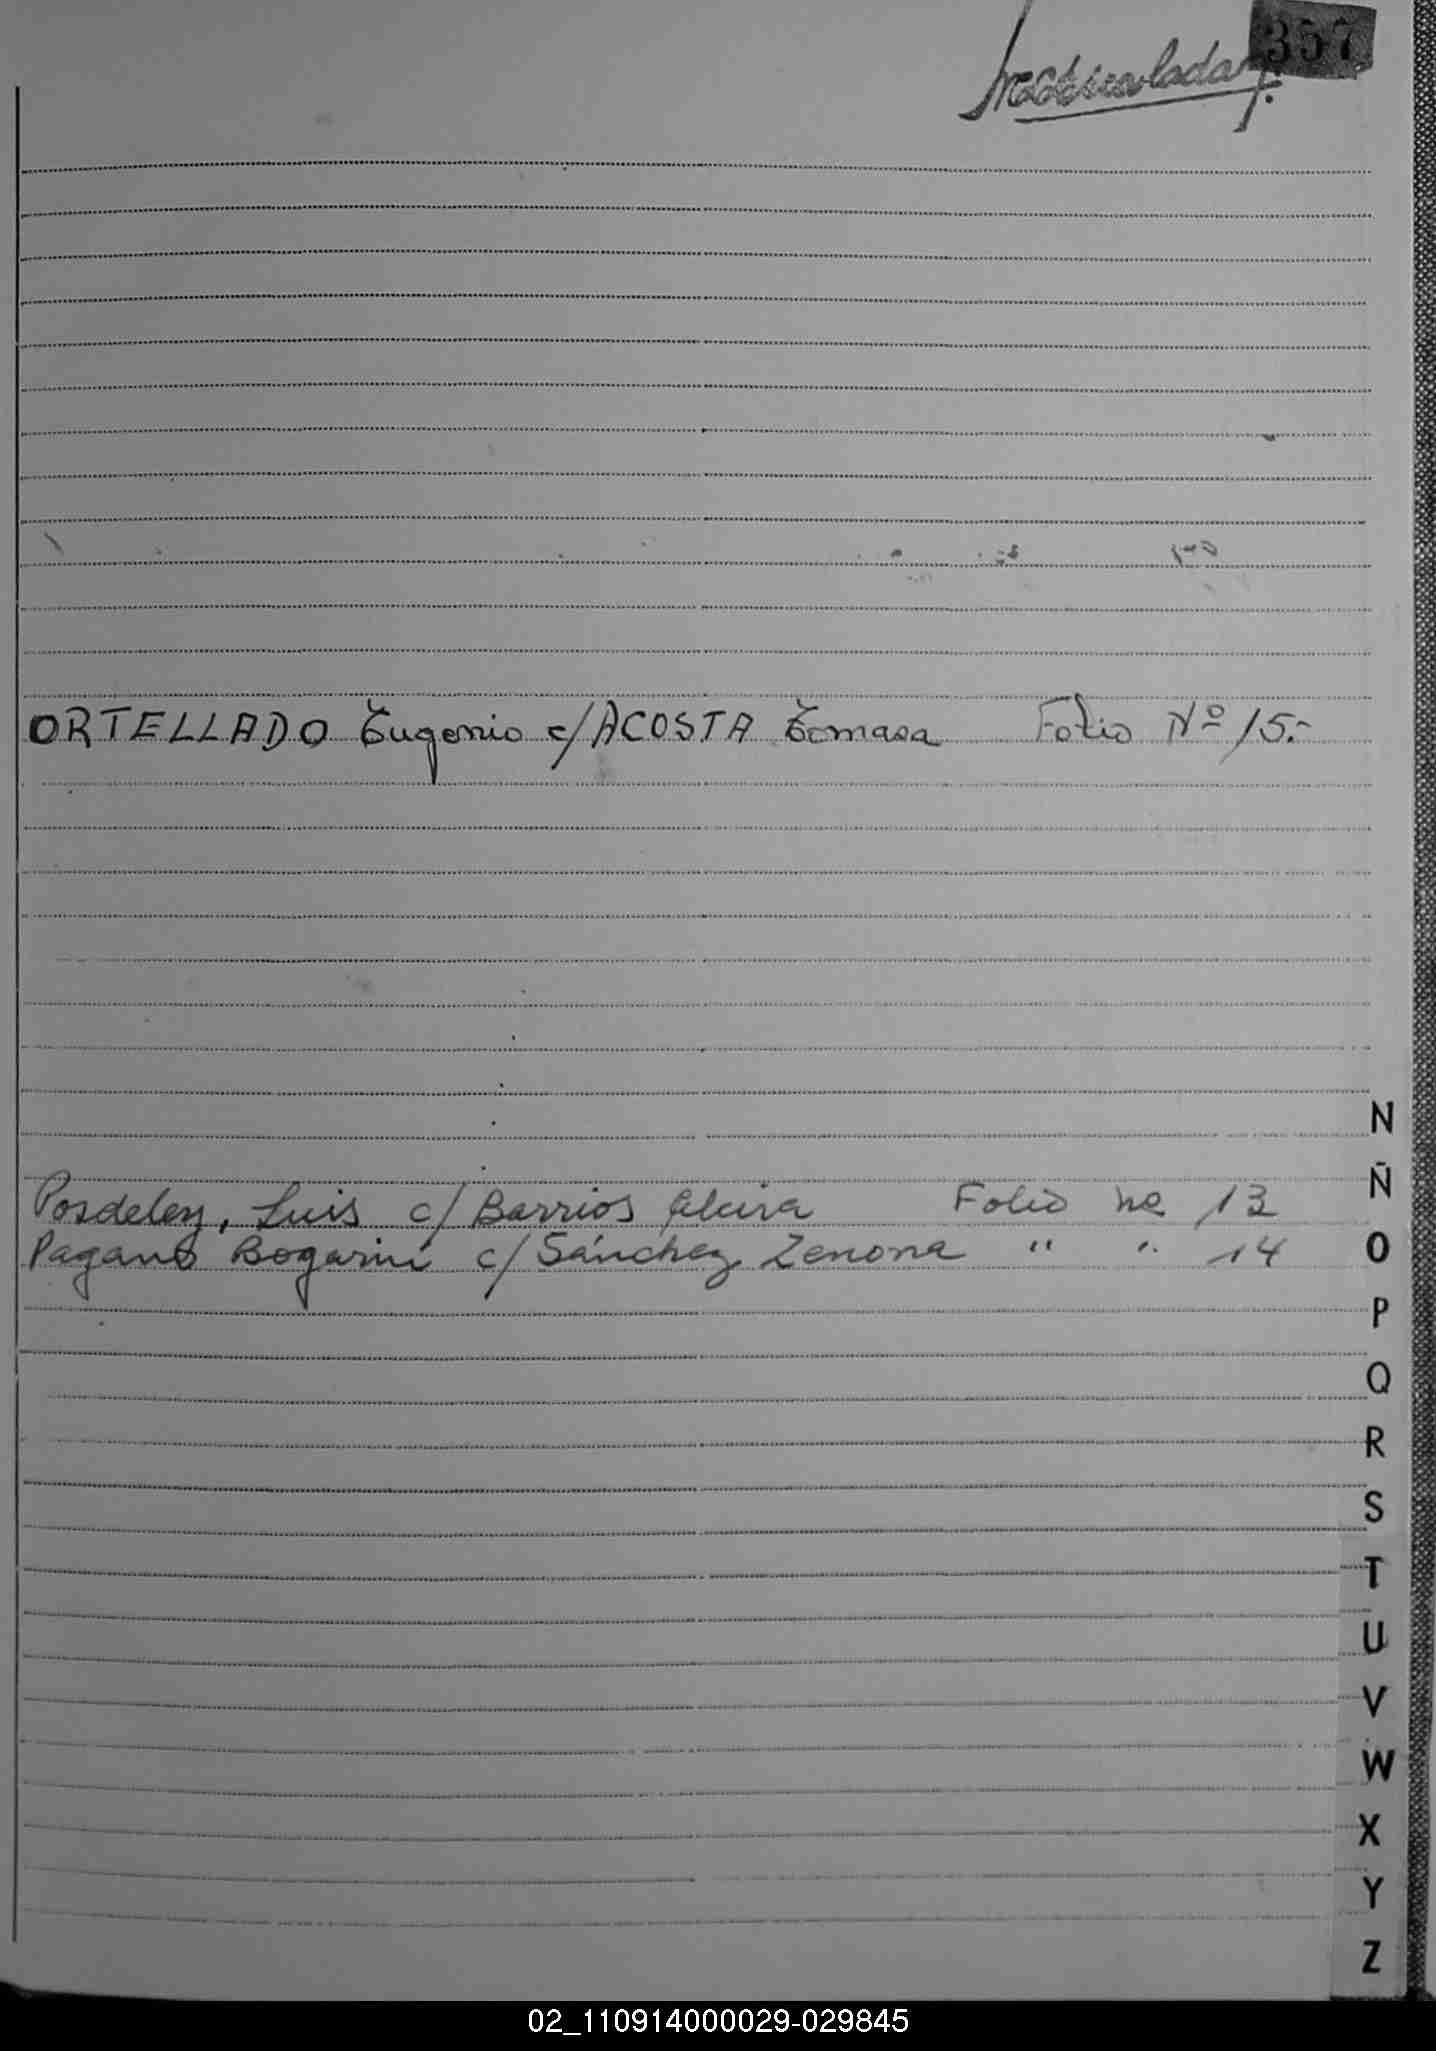 357
ORTELLADO Eugenio c/ ACOSTA Tomasa Folio Nº 15.-
Posdeley, Luis c/ Barrios Alcira Folio no 13
Pagano Bogarini c/ Sánchez Zenona " " 14
N
Ñ
O
P
Q
R
S
T
U
V
W
X
Y
Z
02_110914000029-029845